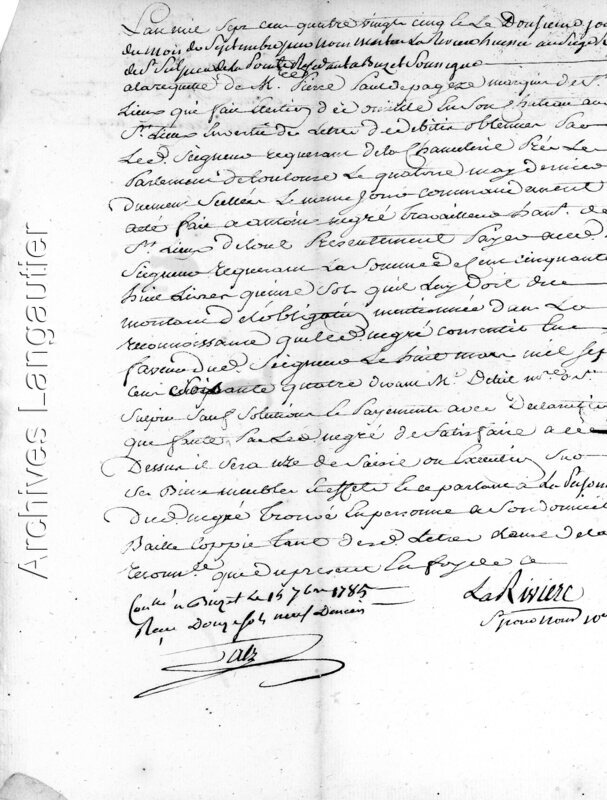 Lan mil sept cent quatre vingt cinq et Le Douzieme jou
du mois de Septembre par nous martin La Riviere huissier au Siege R
de St Sulpice de la Pointe Residant a Buzet Soussigné
a la requette de Me. Pierre Paul de pagèze marquis de St.
Lieux qui fait election de domicile en son chateau au
St. Lieux en vertu des Lettres de debitis obtenues par
Led. Seigneur requerant de la Chancelerie Prés Le
Parlement de toulouse Le quatorze may dernier
duement Scellées Le meme jour commandement
a été fait a antoine negré travailleur habt. de
St. Lieux de tout Presentement Payer aud.
Seigneur requerant La Somme de Cent cinquante
huit Livres quinze Sols quil Luy doit du
montant de lobligation mentionnée dans La
reconnoissance que led. negré consentit en
faveur dud. Seigneur Le huit mars mil sept
cent soixante quatre devant Me. notre. a St.
Sulpice Sauf Solutions et Payements avec Declaration
que faute Par led. negré de Satisfaire a ce
Dessus il sera uzé de Saisie ou Execution Sur
ses Biens meubles et effets et ce parlant a La Personne
dud. negré trouvé en personne a Son domicile
Baillé Coppie tant desd. Lettres clause de la
reconnce. que du present en foy de ce
Conllé a Buzet le 15 7bre 1785 LaRiviere
Reçu Douze Sols neuf Deniers
Archives Langautier